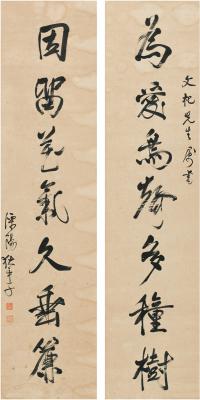 為愛鳥聲多種樹
文杞先生屬書
因留花氣久垂簾
溧陽狄平子